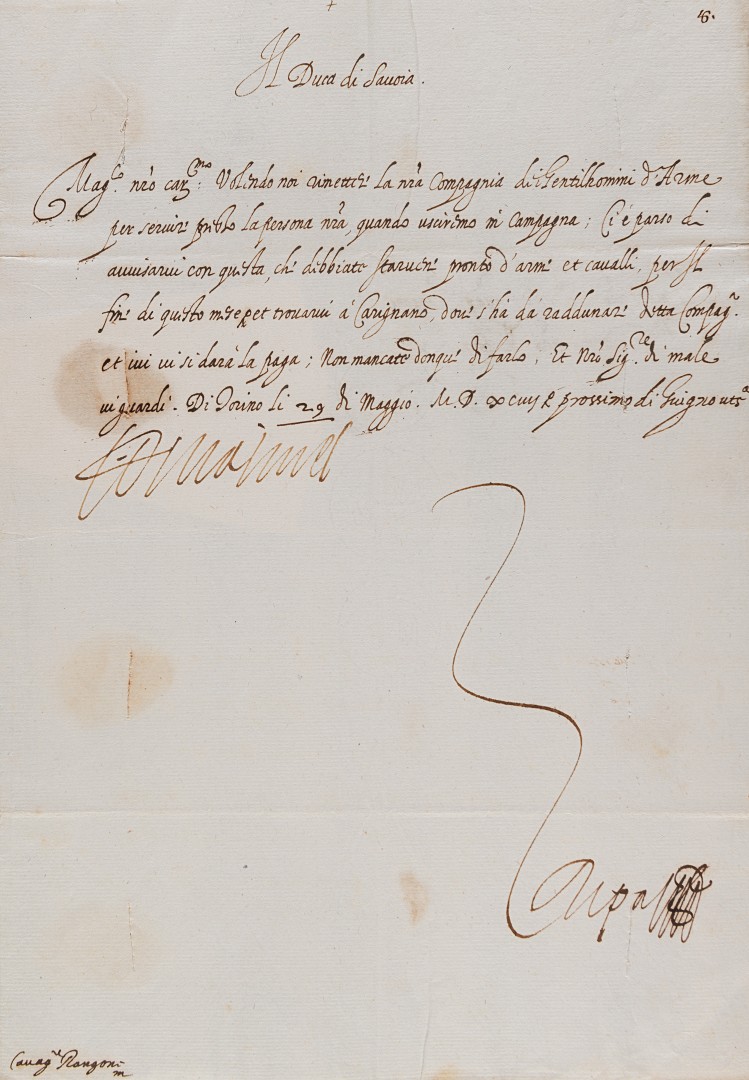 6.
Il Duca di Savoia.
Mag.co nr̃o car.mo: Volendo noi rimetter la nr̃a Compagnia di Gentilhomini d'Arme
per servire presso la persona nr̃a, quando usciremo in Campagna; Ci é parso di
auuisarui con questa, che debbiate staruene pronto d'arme et cavalli, per il
fine di questo mese et trouarui á Carignano, doue s'há dá raddunare detta Compag.a
et iui ui si dará la paga; Non mancate donque di farlo, Et Nr̃o Sig.re di male
ui guardi. Di Torino li 29 di Maggio. M.D.xcvij prossimo di Giugno
Ripa
Cauag.re Rangoni